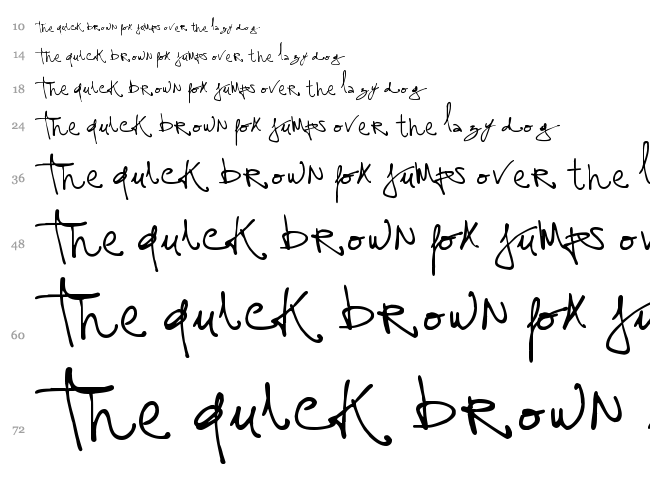 10 The quick brown fox jumps over the lazy dog
14 The quick brown fox jumps over the lazy dog
18 The quick brown fox jumps over the lazy dog
24 The quick brown fox jumps over the lazy dog
36 The quick brown fox jumps over the l
48 The quick brown fox jumps ov
60 The quick brown fox ju
72 The quick brown